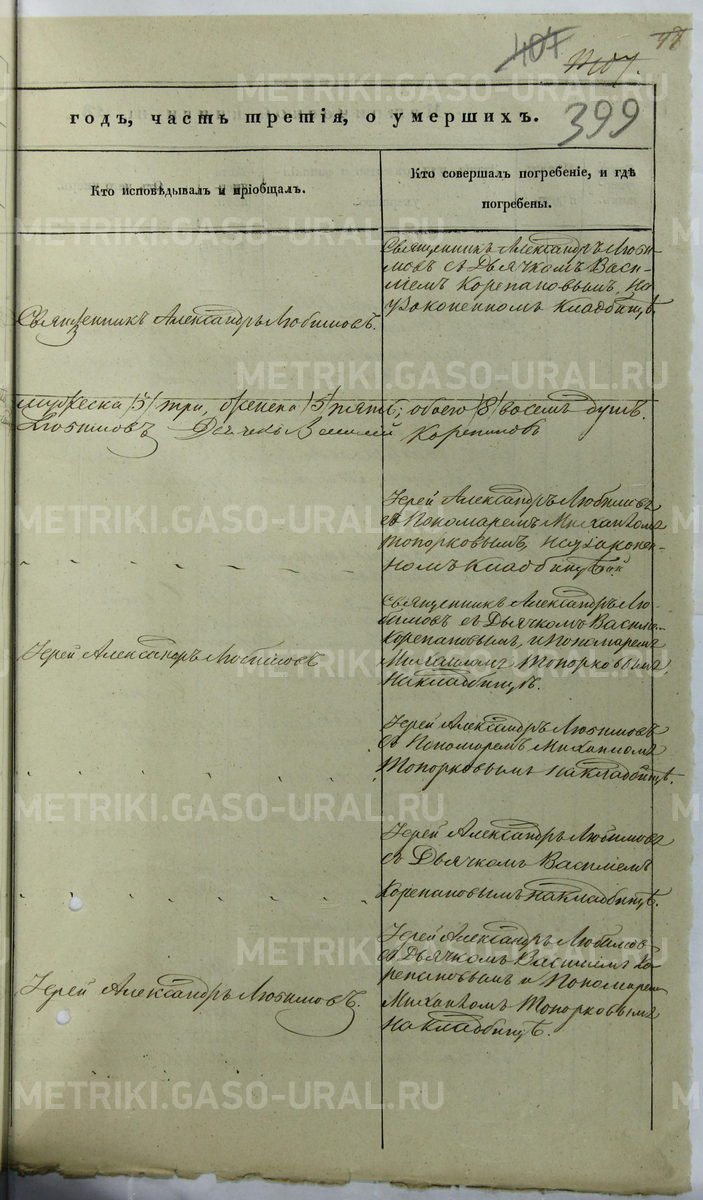 48
407
399
годъ, часть третія, о умершихъ.
Кто исповѣдывалъ и пріобщалъ.
Кто совершалъ погребеніе, и гдѣ
погребены.
Священникъ Александръ Люби-
мовъ съ Дьячкомъ Васи-
ліемъ Корепановымъ, на
узаконенномъ кладбищѣ.
Священникъ Александръ Любимовъ.
мужеска /3/ три, женска /5/ пять; обоего /8/ восемь душъ.
Любимовъ Дьячекъ Василий Корепановъ
Іерей Александръ Любимовъ
съ Пономаремъ Михаиломъ
Топорковымъ, на узаконен-
номъ кладбищѣ.
Священникъ Александръ Лю-
бимовъ съ Дьячкомъ Васил.
Корепановымъ, и Пономаремъ
Михаиломъ Топорковымъ,
на кладбищѣ.
Іерей Александръ Любимовъ
Іерей Александръ Любимовъ
съ Пономаремъ Михаиломъ
Топорковымъ на кладбищѣ.
Іерей Александръ Любимовъ
съ Дьячкомъ Василіемъ
Корепановымъ на кладбищѣ.
Іерей Александръ Любимов
съ Дьячкомъ Василіемъ Ко-
репановымъ и Пономаремъ
Михаиломъ Топорковымъ
на кладбищѣ.
Іерей Александръ Любимовъ.
METRIKI.GASO-URAL.RU